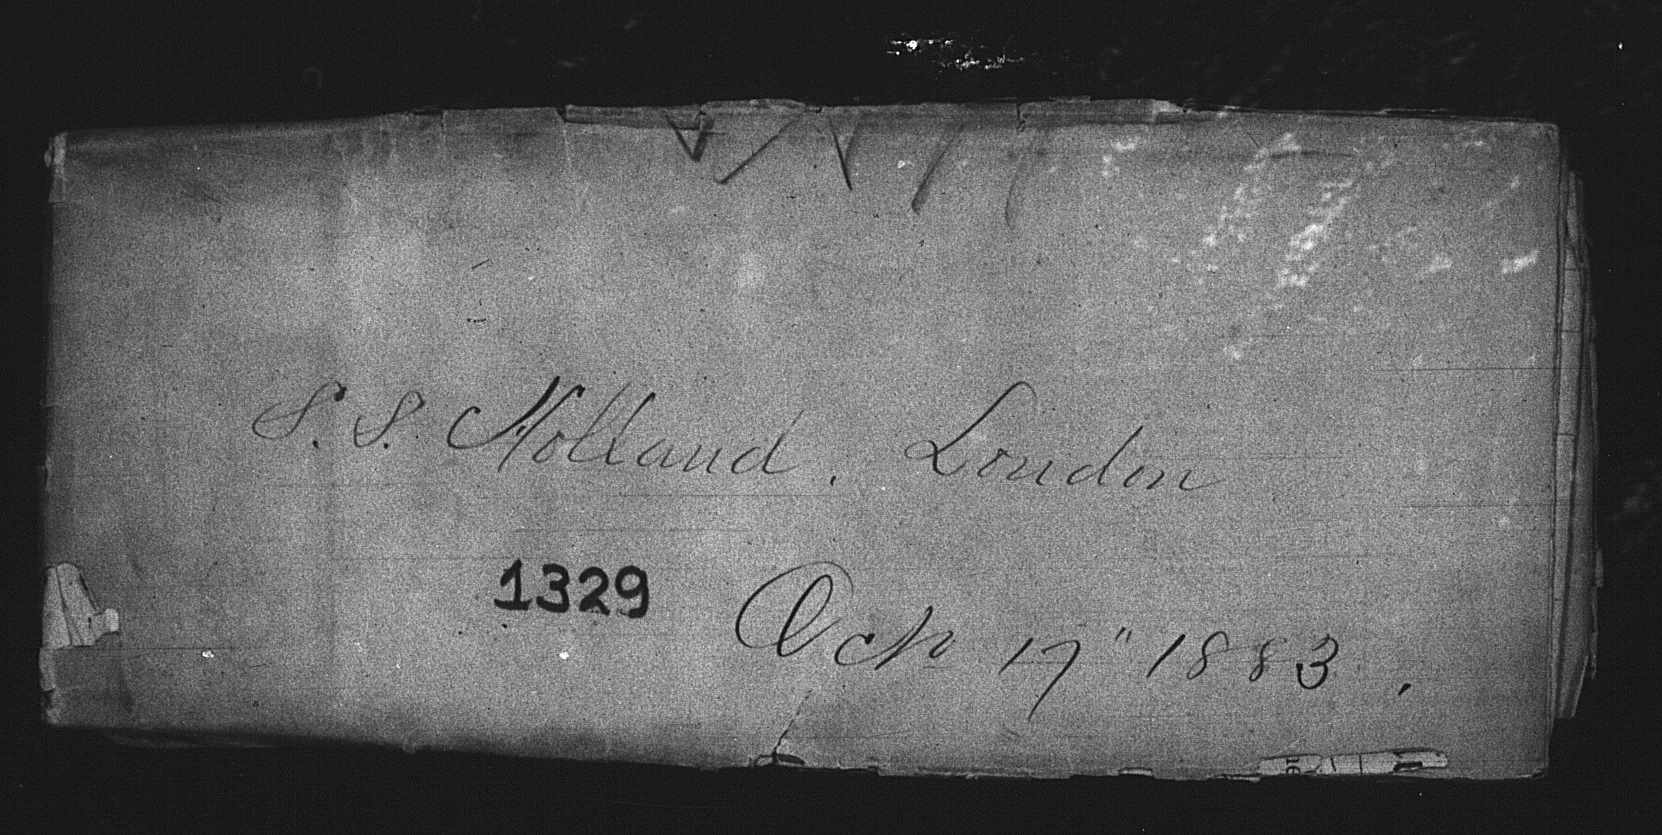 S. S. Holland. London
1329
Oct 17" 1883.